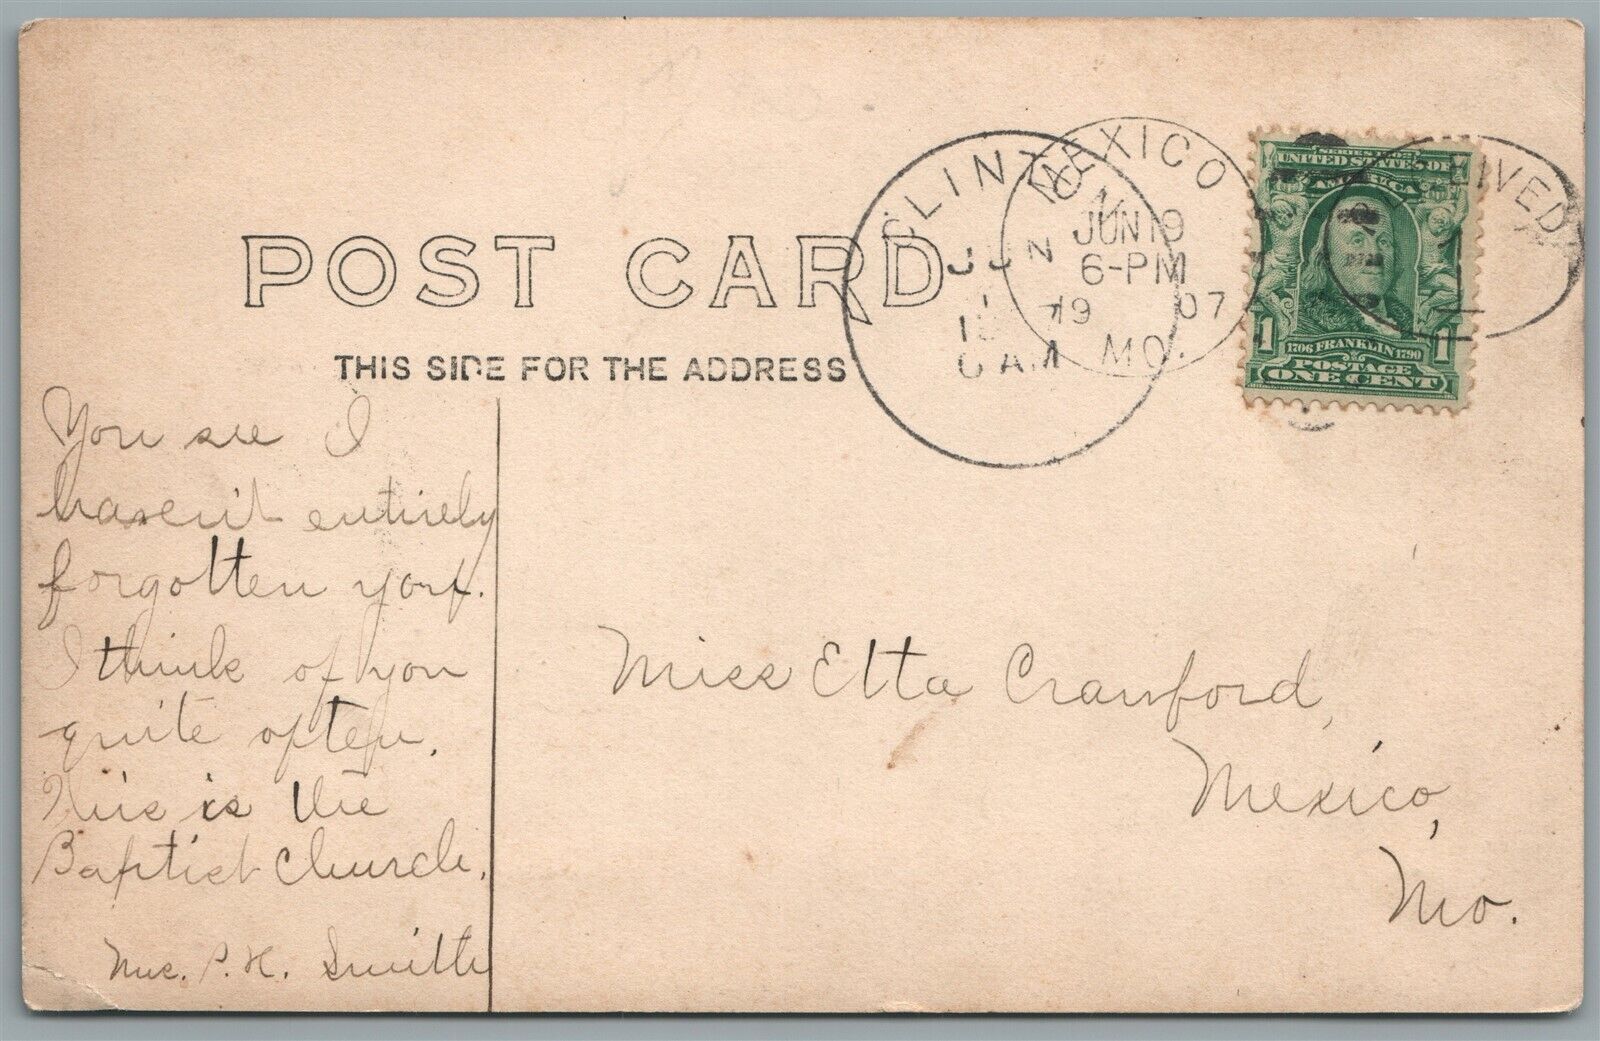 POST CARD
THIS SIDE FOR THE ADDRESS
CLINTON
JUN
6 AM
MEXICO
JUN 19
6-PM
1907
MO.
SERIES 1902
UNITED STATES OF
AMERICA
1706 FRANKLIN 1790
1 1
POSTAGE
ONE CENT
1
You see I
haven't entirely
forgotten you.
I think of you
quite often.
This is the
Baptist Church.
Mrs. P. H. Smith
Miss Etta Crawford,
Mexico,
Mo.